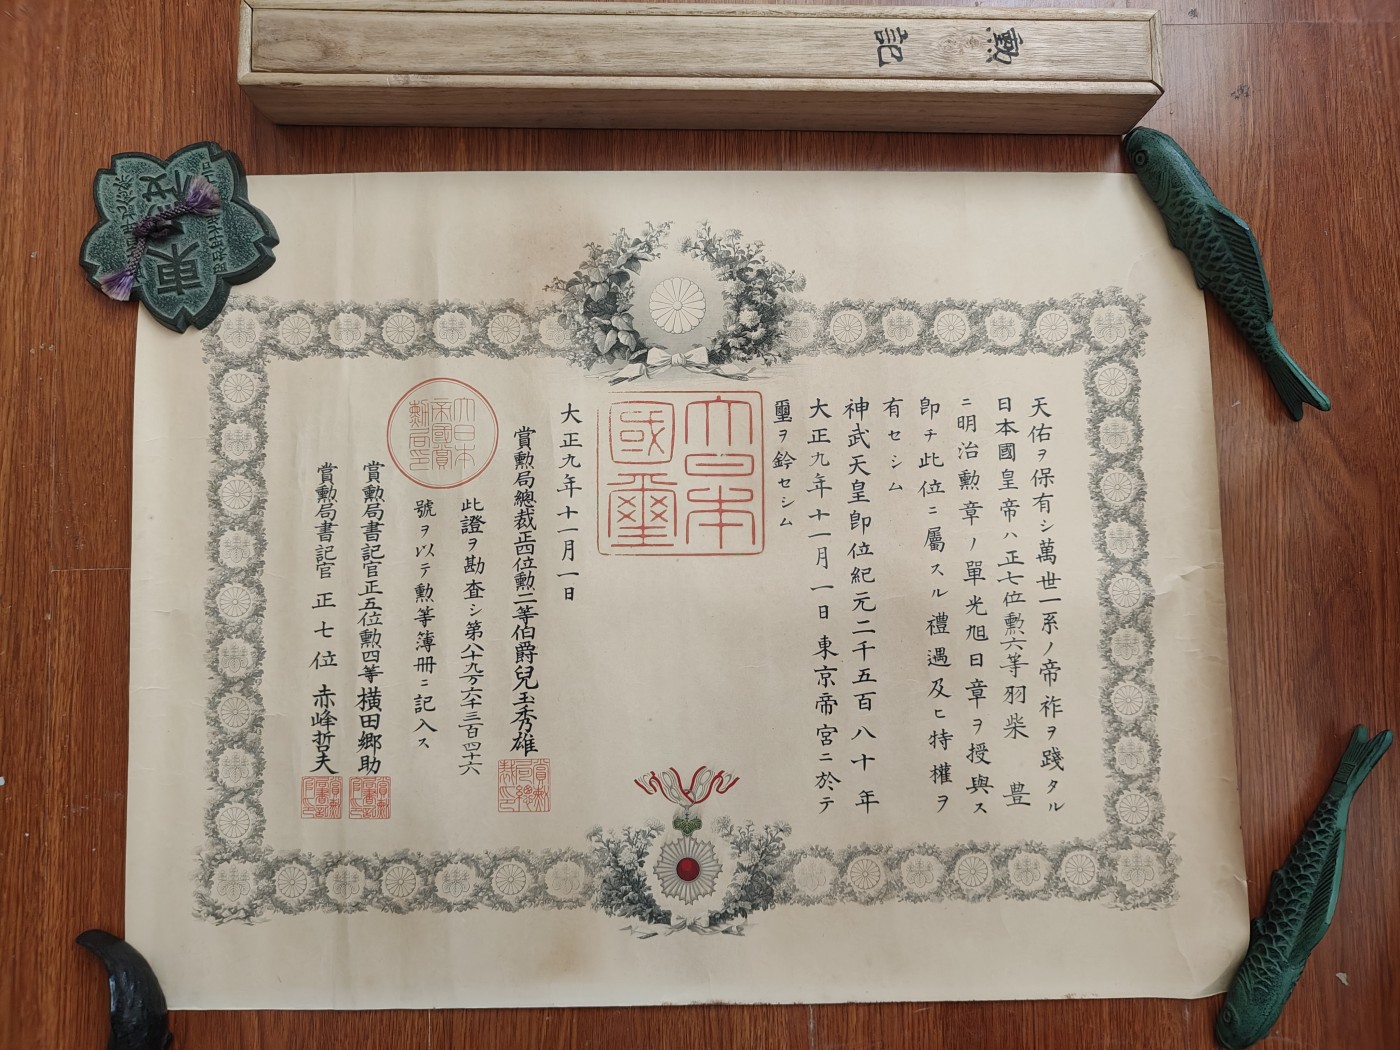 勲記
東
天佑ヲ保有シ萬世一系ノ帝祚ヲ踐タル
日本國皇帝ハ正七位勲六等羽柴 豊
ニ明治勲章ノ單光旭日章ヲ授與ス
卽チ此位ニ屬スル禮遇及ヒ特權ヲ
有セシム
神武天皇卽位紀元二千五百八十年
大正九年十一月一日東京帝宮ニ於テ
璽ヲ鈐セシム
大日本
國璽
大正九年十一月一日
賞勲局總裁正四位勲二等伯爵兒玉秀雄
此證ヲ勘査シ第八十九万六千三百四十六
號ヲ以テ勲等簿册ニ記入ス
大日本
帝國賞
勲局印
賞勲局書記官正五位勲四等橫田鄉助
賞勲局書記官正七位赤峰哲夫